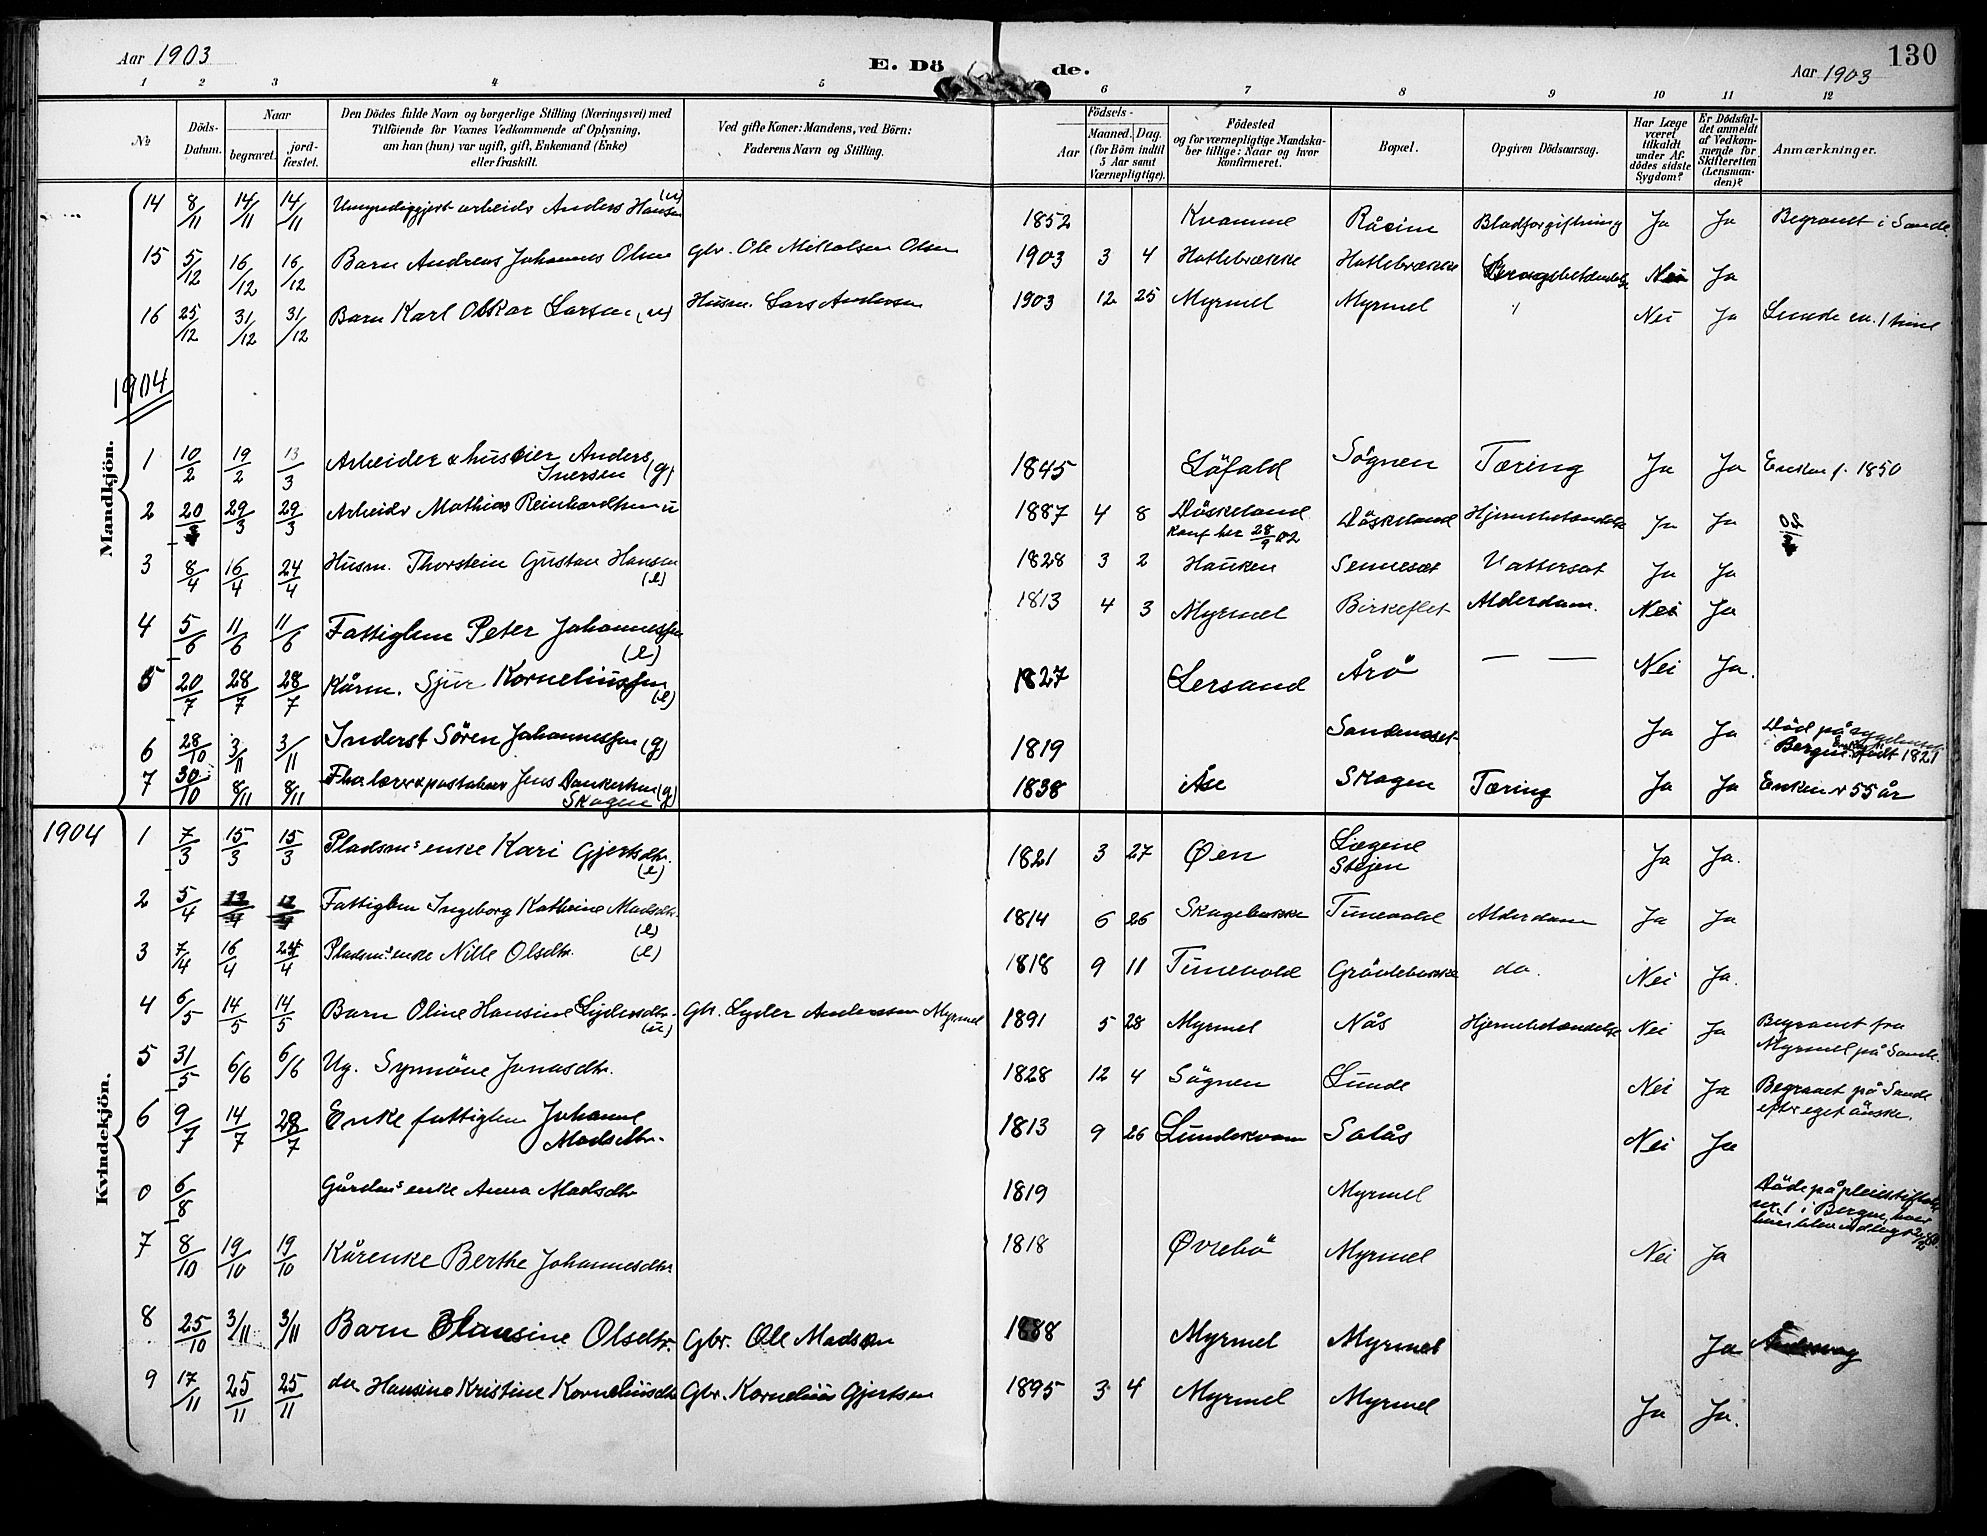 Aar 1903
E. Döde.
130
Aar 1903
1 2 3 4 5 6 7 8 9 10 11 12
No
Döds-Datum.
Naar
begravet.
jordfæstet.
Den Dödes fulde Navn og borgerlige Stilling (Næringsvei) med
Tilföiende for Voxnes Vedkommende af Oplysning,
om han (hun) var ugift, gift, Enkemand (Enke)
eller fraskilt.
Ved gifte Koner: Mandens, ved Börn:
Faderens Navn og Stilling.
Födsels-
Aar
Maaned. Dag.
(for Börn indtil
5 Aar samt
Værnepligtige).
Födested
og for værnepligtige Mandskaber
tillige: Naar og hvor
konfirmeret.
Bopæl.
Opgiven Dödsaarsag.
Har Læge
været
tilkaldt
under Afdödes
sidste
Sygdom?
Er Dödsfaldet
anmeldt
af Vedkommende
for
Skifteretten
(Lensmanden)?
Anmærkninger.
Mandkjön.
14 8/11 14/11 14/11 arbeider Anders Hansen (u) 1852 Kvamme Råsine Blodforgiftning Ja Ja Begravet i Sande.
15 5/12 16/12 16/12 Barn Andreas Johannes Olsen Gbr. Ole Mikalsen Olsen 1903 3 4 Hatlebrække Hatlebrække Nei Ja
16 25/12 31/12 31/12 Barn Karl Oskar Larsen (u) Husm. Lars Andersen 1903 12 25 Myrmel Myrmel Nei Ja Levede en. 1 time
1904
1 10/2 19/2 13/3 Arbeider & huseier Anders
Iversen (g) 1845 Löfald Sögnen Tæring Ja Ja Enken f. 1850
2 20/3 29/3 29/3 Arbeider Mathias Reinhardtsen u 1887 4 8 Döskeland
Konf her 28/9 02 Döskeland Hjernebetændelse Ja Ja 20
3 8/4 16/4 24/4 Husm. Thorstein Gustav Hansen
(e) 1828 3 2 Hauken Senneset Vattersot Ja Ja
4 5/6 11/6 11/6 Fattiglem Peter Johannessen
(e) 1813 4 3 Myrmel Birkeflet Alderdom. Nei Ja
5 20/7 28/7 28/7 Kårm. Sjur Korneliussen
(e) 1827 Lersand Årö — — Nei Ja.
6 28/10 3/11 3/11 Inderst Sören Johannessen (g) 1819 Ja Ja Död på sygehuset
i Bergen. Enken födt 1821
7 30/10 8/11 8/11 Jens Dankertsen (g)
Skagen 1838 Åse Skagen Tæring Ja Ja Enken er 55 år
Kvindekjön.
1904 1 7/3 15/3 15/3 Pladsms enke Kari Gjertsdtr.
(e) 1821 3 27 Øen Lægene
Stejen Ja Ja.
2 5/4 12/4 12/4 Fattiglem Ingeborg Kathrine Madsdtr.
(e) 1814 6 26 Skagebække Tunevold Alderdom Ja Ja
3 7/4 16/4 24/4 Pladsms enke Nille Olsdtr. (e) 1818 9 11 Tunevold Grövlebække do. Nei Ja.
4 6/5 14/5 14/5 Barn Oline Hansine Lydersdtr.
(u) Gbr. Lyder Andersen Myrmel 1891 5 28 Myrmel Nås Hjernebetændelse Nei Ja Begravet fra
Myrmel på Sande.
5 31/5 6/6 6/6 Ug. Synnöve Jonasdtr. 1828 12 4 Sögnen Lunde Nei Ja Begravet på Sande
efter eget önske.
6 9/7 14/7 28/7 Enke fattiglem Johanne
Madsdtr. 1813 9 26 Lundekvam Solås Nei Ja
0 6/8 Gårdms enke Anna Madsdtr 1819 Myrmel Döde på pleiestiftelse
nr. 1 i Bergen, hvor
7 8/10 19/10 19/10 Kårenke Berthe Johannesdtr. 1818 Øvrebö Myrmel Nei Ja
8 25/10 3/11 3/11 Barn Olausine Olsdtr. Gbr. Ole Madsen 1888 Myrmel Myrmel Ja
9 17/11 25/11 25/11 do Hansine Kristine Korneliusdtr Gbr. Kornelius Gjertsen 1895 3 4 Myrmel Myrmel Ja Ja.